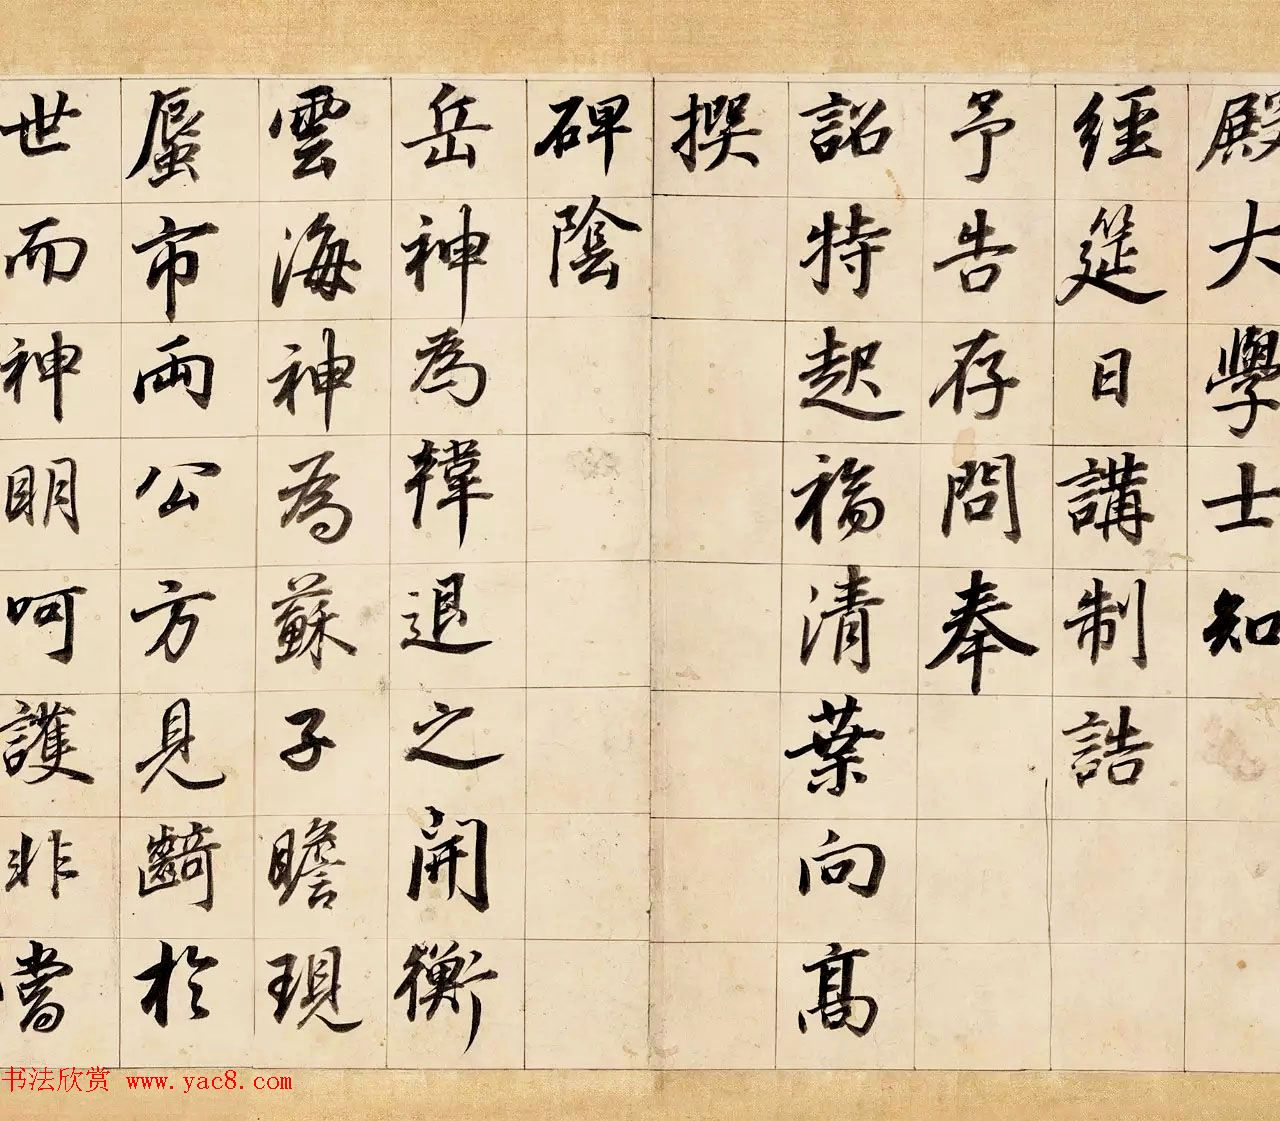 殿大學士知
經筵日講制誥
予告存問奉
詔特起福清葉向高
撰
碑陰
岳神為韓退之開衡
雲海神為蘇子瞻現
蜃市兩公方見齮於
世而神明呵護非嘗
书法欣赏 www.yac8.com